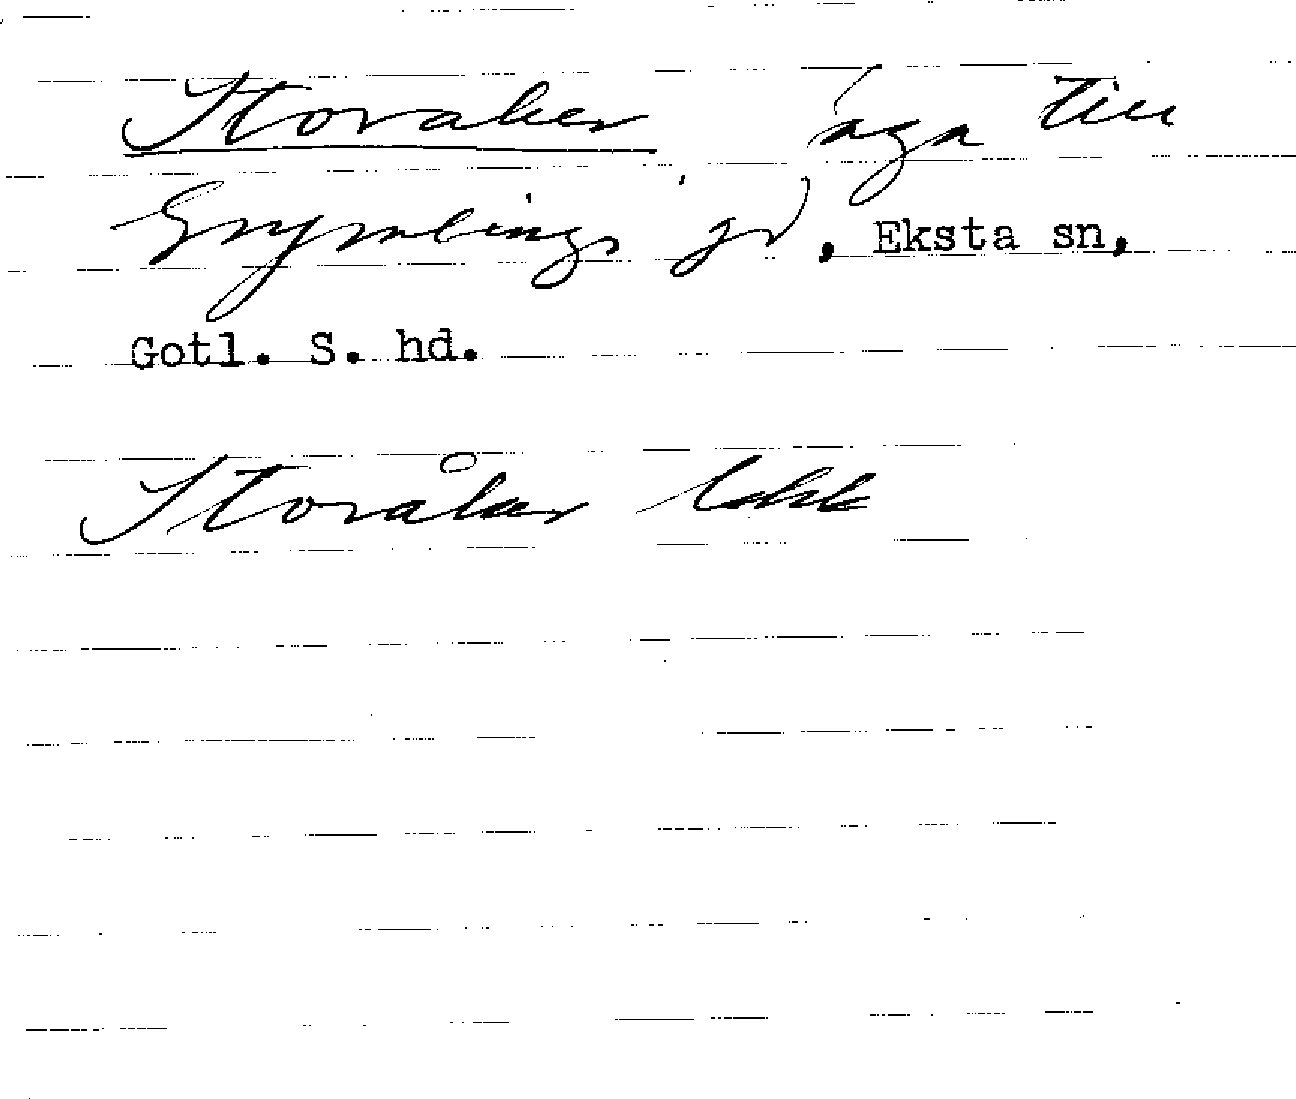 Storaker äga till
Grymlings gd, Eksta sn,
Gotl. S. hd.
Storåker